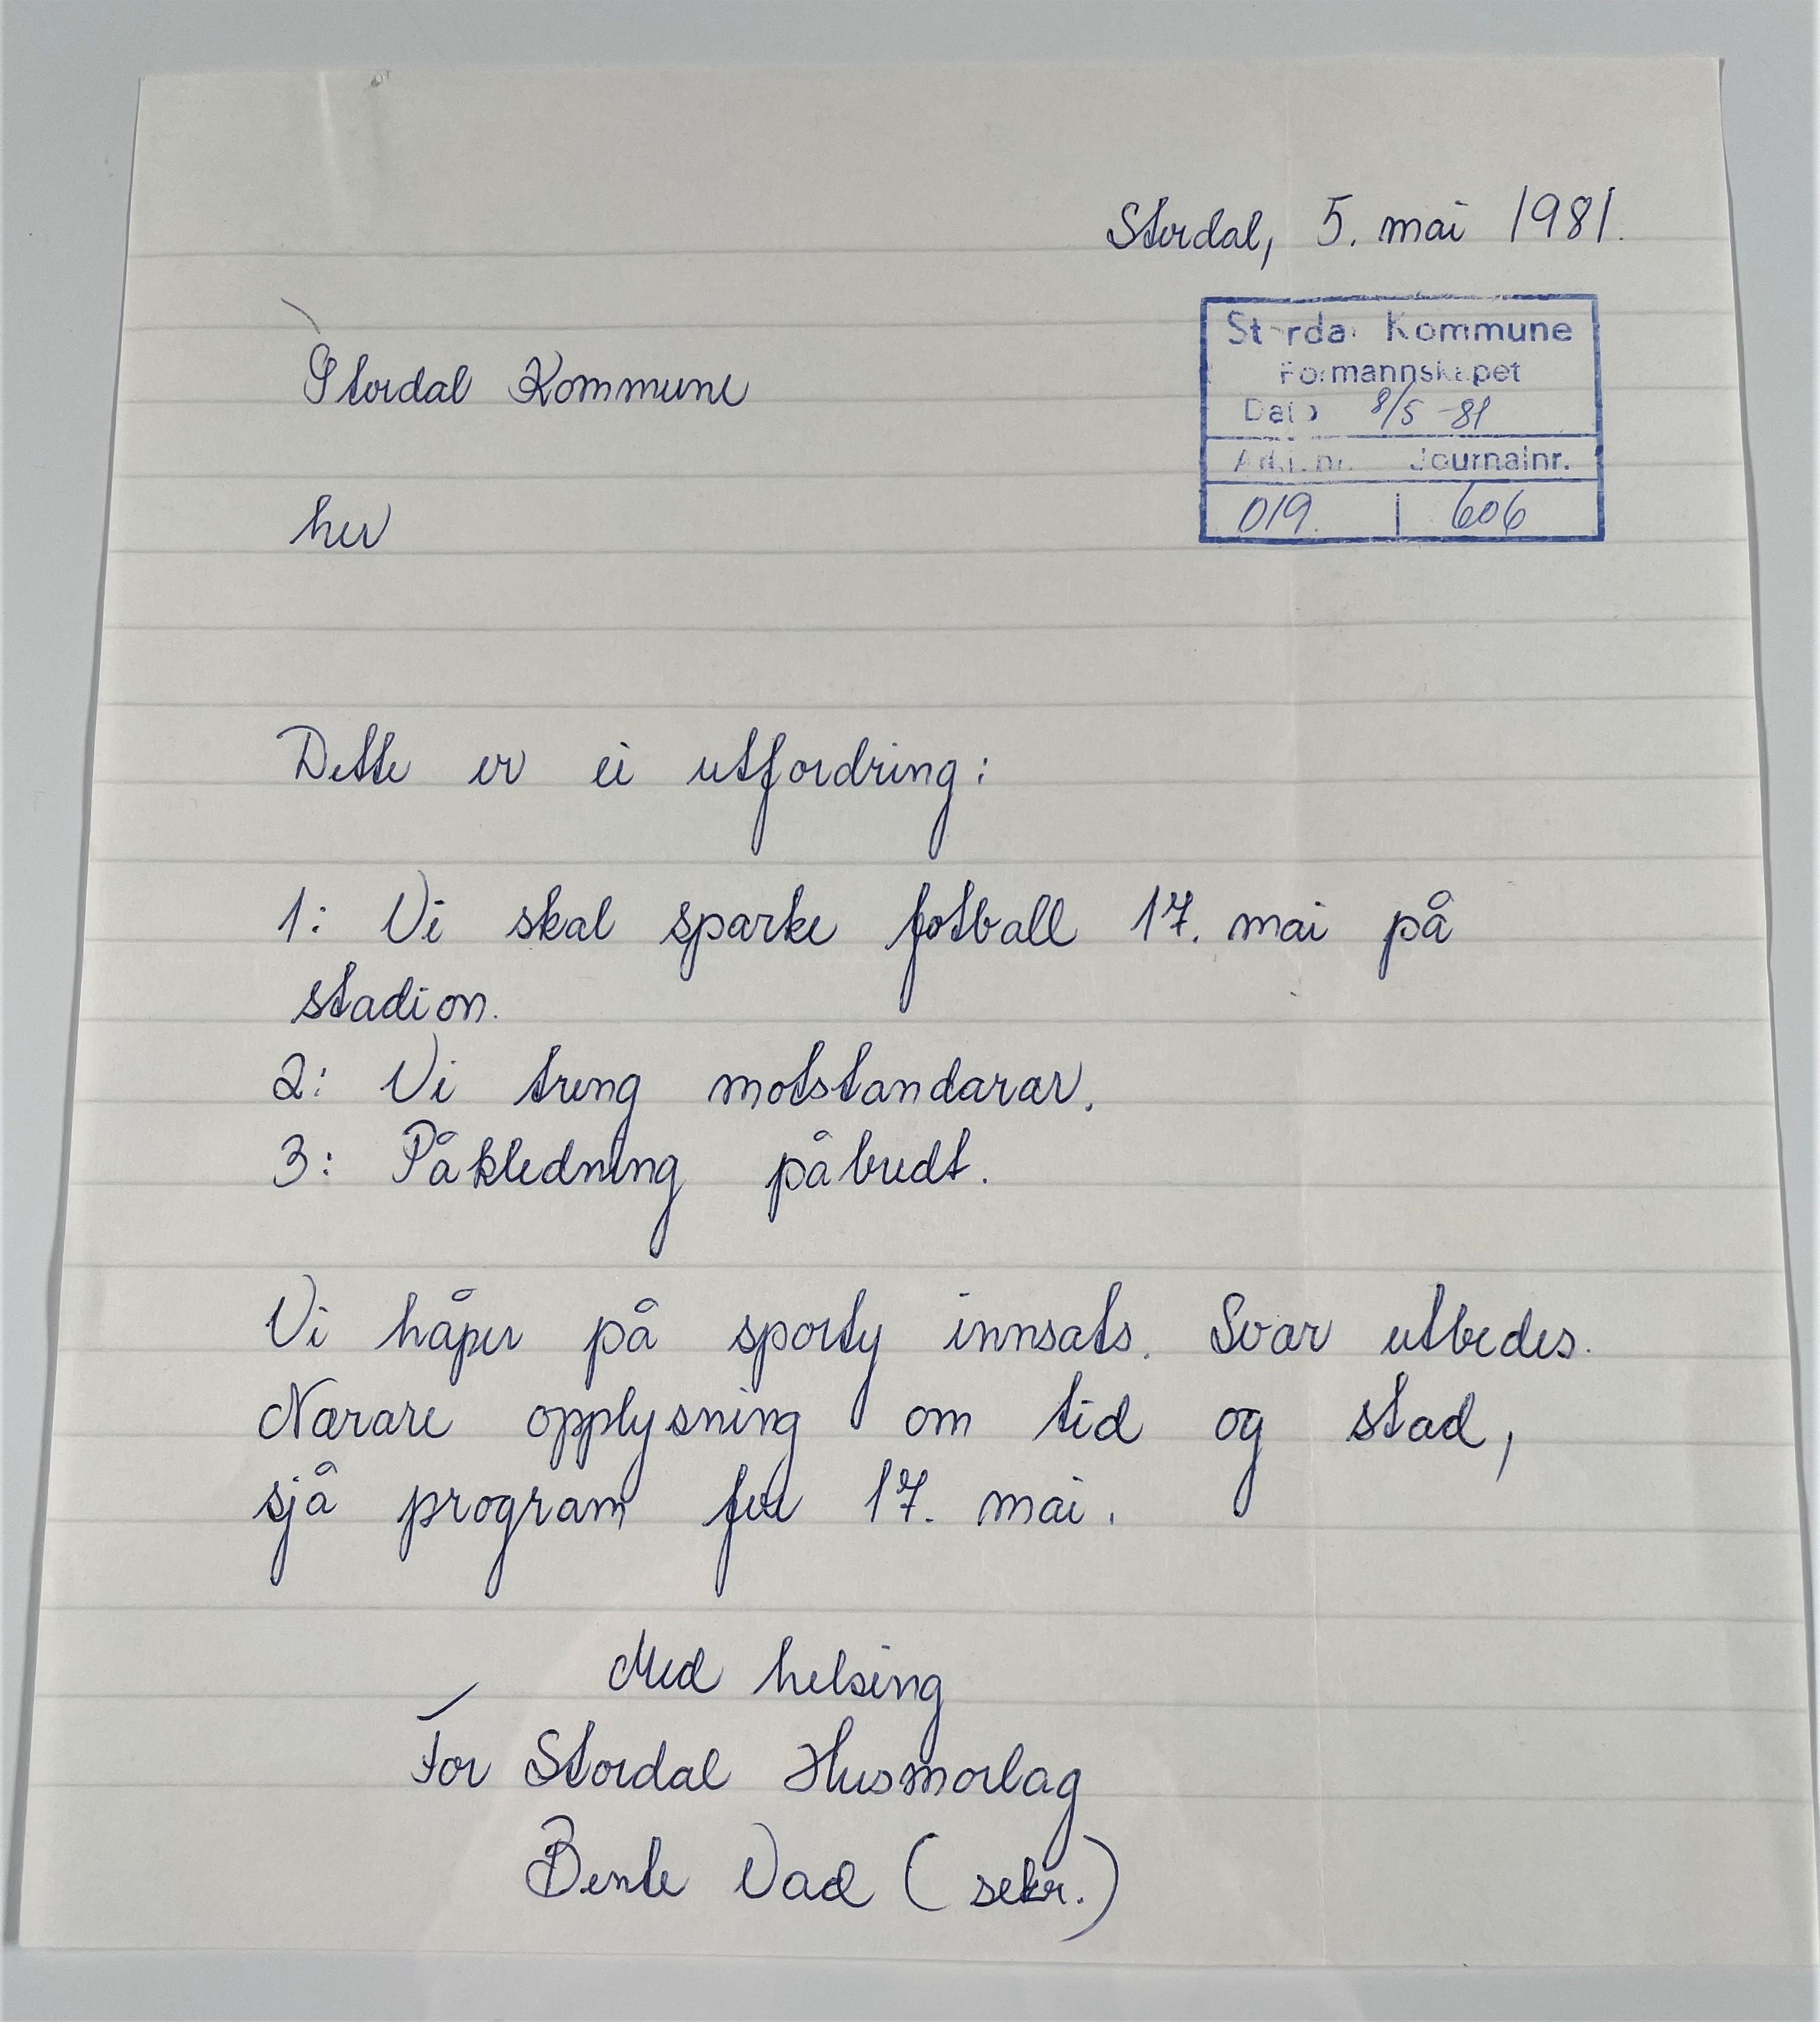 Stordal, 5. mai 1981.
Stordal Kommune
Formannskapet
Dato 8/5 -81
Journalnr.
019. 606
Stordal Kommune
her
Dette er ei utfordring:
1: Vi skal sparke fotball 17. mai på
stadion.
2: Vi treng motstandarar.
3: Påkledning påbudt.
Vi håper på sporty innsats. Svar utbedes.
Nærare opplysning om tid og stad,
sjå program for 17. mai.
Med helsing
For Stordal Husmorlag
Bente Vad (sekr.)